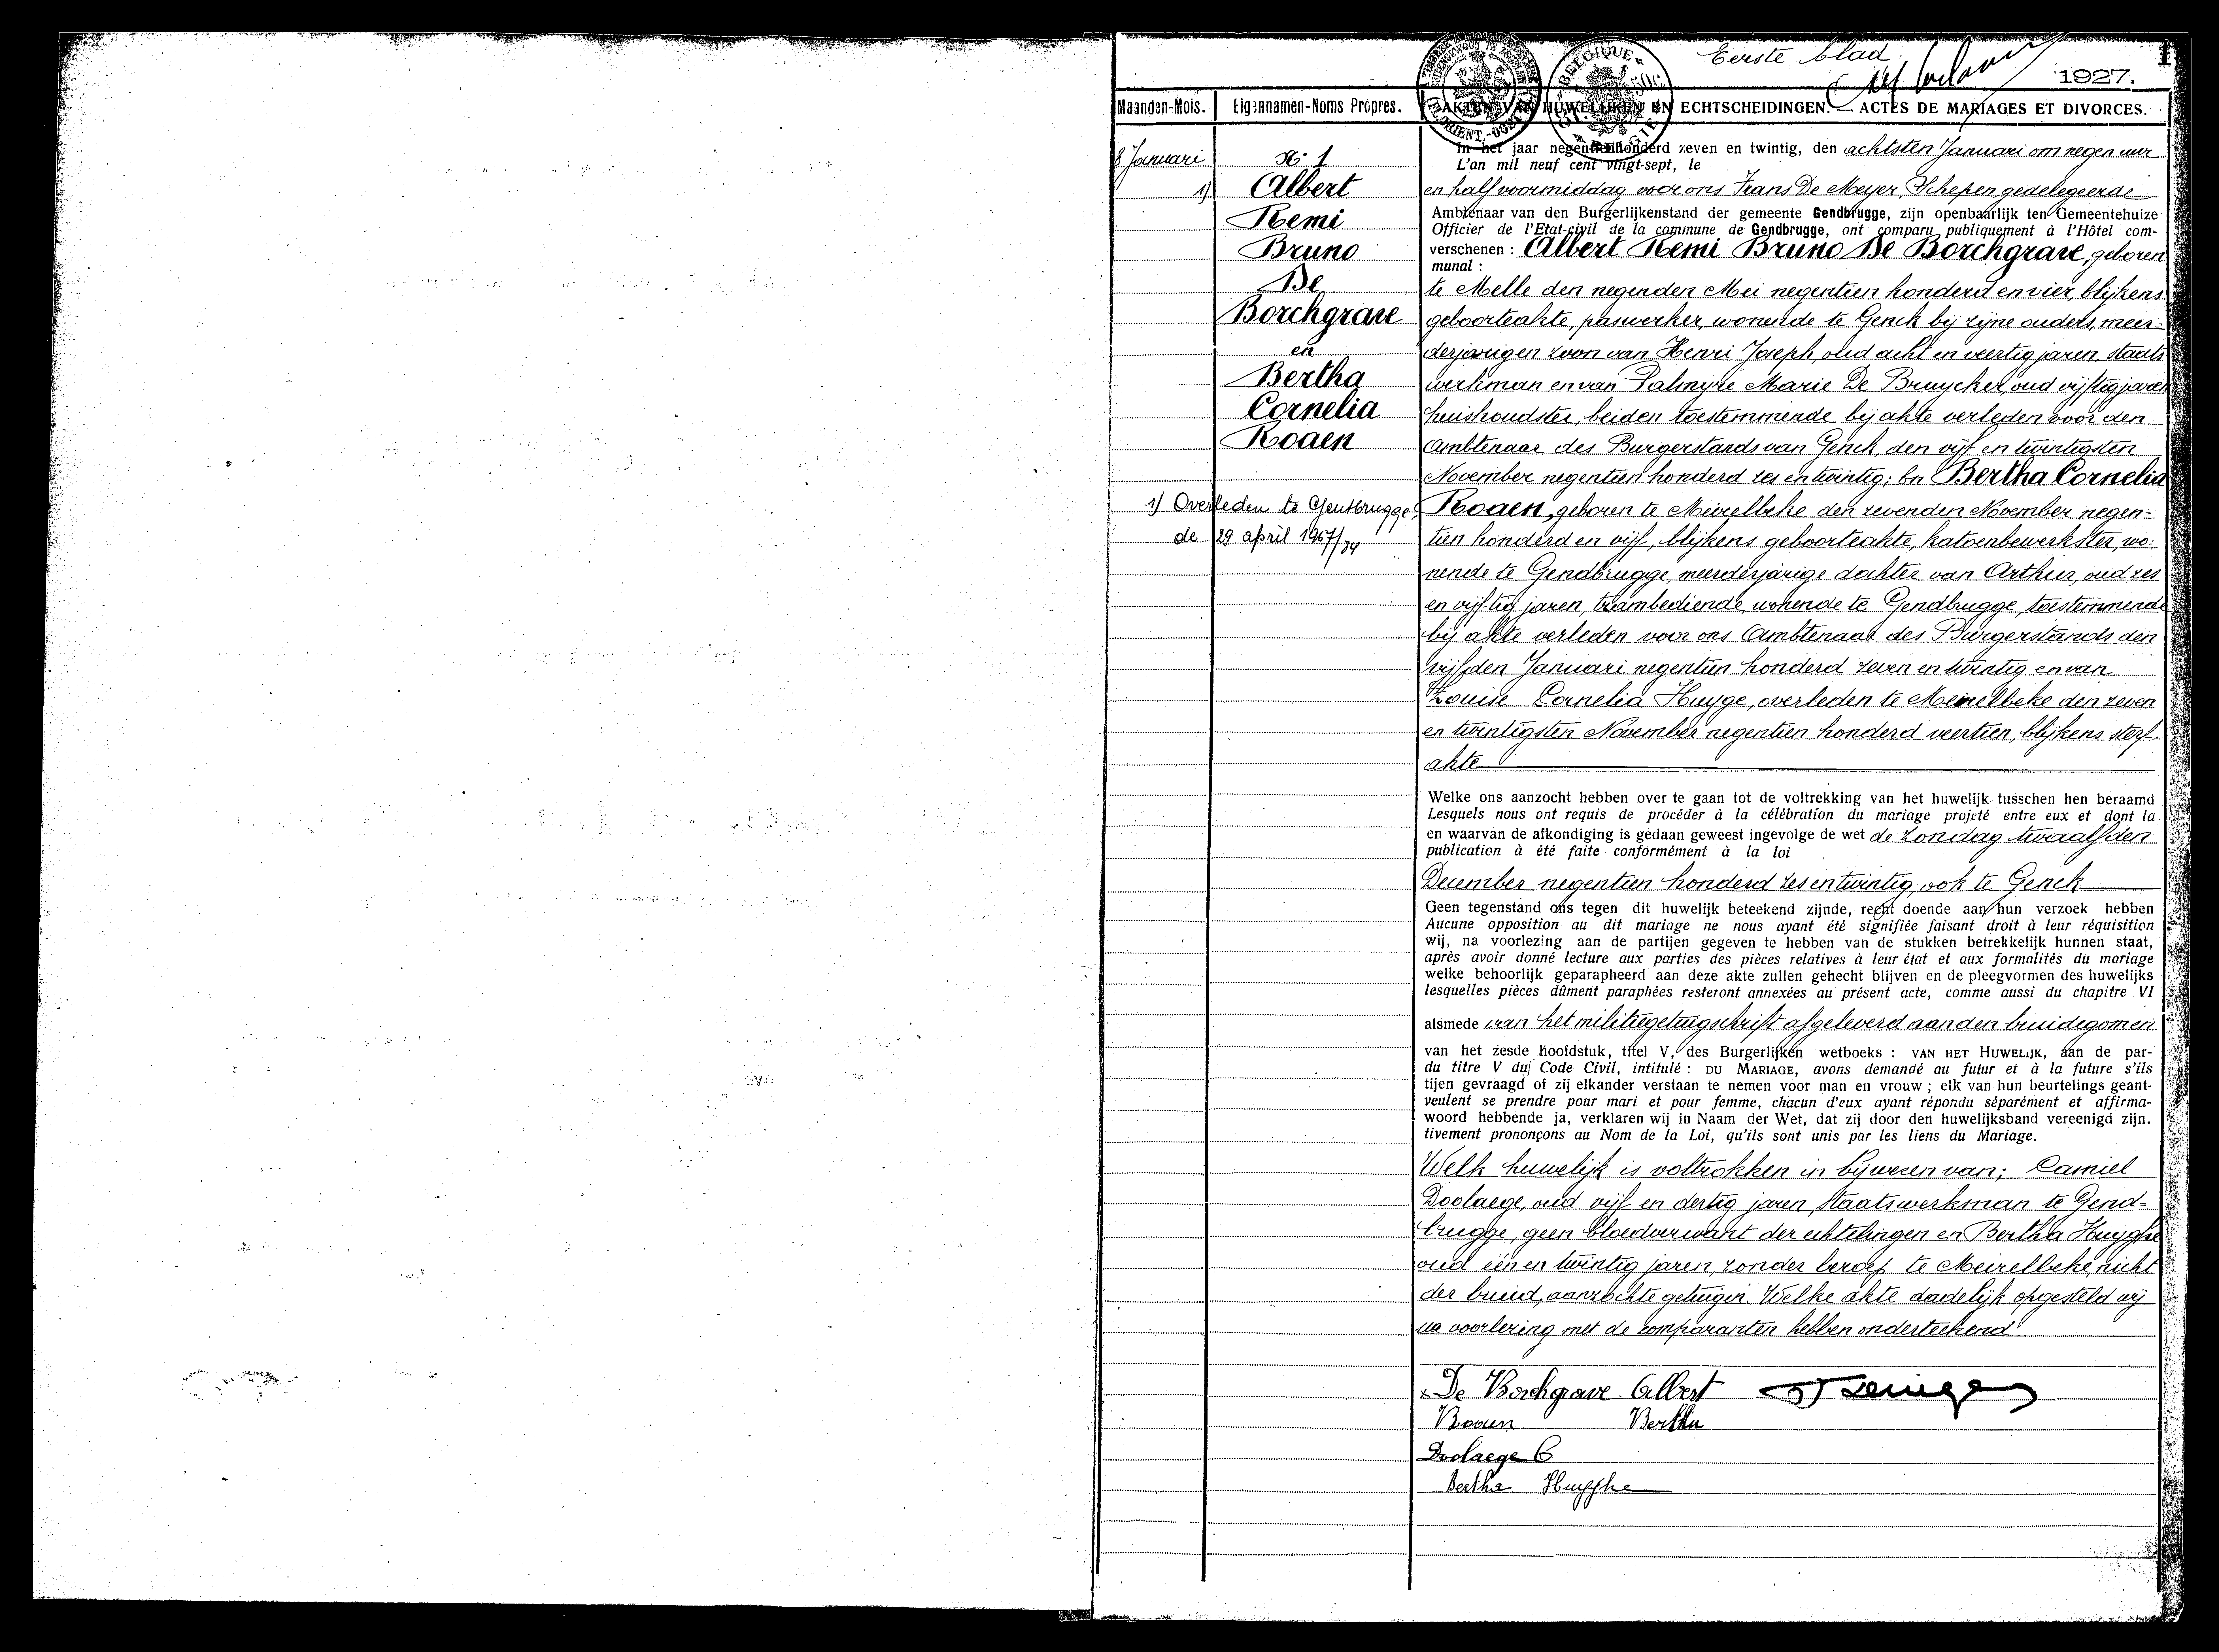 Eerste blad
1
1927.
Maanden-Mois. Eigennamen-Noms Propres. AKTEN VAN HUWELIJKEN EN ECHTSCHEIDINGEN. — ACTES DE MARIAGES ET DIVORCES.
BELGIQUE
8 Januari
1)
N. 1
Albert
Remi
Bruno
De
Borchgrave
en
Bertha
Cornelia
Roaen
1) Overleden te Gentbrugge
de 29 april 1967/34
In het jaar negentienhonderd zeven en twintig, den achtsten Januari om negen uur
L'an mil neuf cent vingt-sept, le
en half voormiddag voor ons Frans De Meyer, Schepen gedelegeerde
Ambtenaar van den Burgerlijkenstand der gemeente Gendbrugge, zijn openbaarlijk ten Gemeentehuize
Officier de l'Etat-civil de la commune de Gendbrugge, ont comparu publiquement à l'Hôtel com-
verschenen : Albert Remi Bruno De Borchgrave, geboren
munal :
te Melle den negenden Mei negentien honderd en vier, blijkens
geboorteakte, paswerker, wonende te Genck bij zijne ouders, meer-
derjarigen zoon van Henri Joseph, oud acht en veertig jaren, staats
werkman en van Palmyre Marie De Bruycker, oud vijftig jaren
huishoudster, beiden toestemmende bij akte verleden voor den
Ambtenaar des Burgerstands van Genck, den vijf en twintigsten
November negentien honderd zes en twintig; En Bertha Cornelia
Roaen, geboren te Meirelbeke den zevenden November negen-
tien honderd en vijf, blijkens geboorteakte, katoenbewerkster, wo-
nende te Gendbrugge, meerderjarige dochter van Arthur, oud zes
en vijftig jaren, trambediende, wonende te Gendbrugge, toestemmende
bij akte verleden voor ons Ambtenaar des Burgerstands den
vijfden Januari negentien honderd zeven en twintig en van
Louise Cornelia Huyge, overleden te Meirelbeke den zeven
en twintigsten November negentien honderd veertien, blijkens sterf-
akte
Welke ons aanzocht hebben over te gaan tot de voltrekking van het huwelijk tusschen hen beraamd
Lesquels nous ont requis de procéder à la célébration du mariage projeté entre eux et dont la
en waarvan de afkondiging is gedaan geweest ingevolge de wet de Zondag twaalfden
publication à été faite conformément à la loi
December negentien honderd zes en twintig, ook te Genck
Geen tegenstand ons tegen dit huwelijk beteekend zijnde, recht doende aan hun verzoek hebben
Aucune opposition au dit mariage ne nous ayant été signifiée faisant droit à leur réquisition
wij, na voorlezing aan de partijen gegeven te hebben van de stukken betrekkelijk hunnen staat,
après avoir donné lecture aux parties des pièces relatives à leur état et aux formalités du mariage
welke behoorlijk geparapheerd aan deze akte zullen gehecht blijven en de pleegvormen des huwelijks
lesquelles pièces dûment paraphées resteront annexées au présent acte, comme aussi du chapitre VI
alsmede van het militiegetuigschrift afgeleverd aan den bruidegom en
van het zesde hoofdstuk, titel V, des Burgerlijken wetboeks : VAN HET HUWELIJK, aan de par-
du titre V du Code Civil, intitulé : DU MARIAGE, avons demandé au futur et à la future s'ils
tijen gevraagd of zij elkander verstaan te nemen voor man en vrouw ; elk van hun beurtelings geant-
veulent se prendre pour mari et pour femme, chacun d'eux ayant répondu séparément et affirma-
woord hebbende ja, verklaren wij in Naam der Wet, dat zij door den huwelijksband vereenigd zijn.
tivement prononçons au Nom de la Loi, qu'ils sont unis par les liens du Mariage.
Welk huwelijk is voltrokken in bijwezen van; Camiel
Doolaege, oud vijf en dertig jaren, staatswerkman te Gend-
brugge, geen bloedverwant der echtelingen en Bertha Huyghe
oud één en twintig jaren, zonder beroep te Meirelbeke, nicht
der bruid, aanzochte getuigen. Welke akte dadelijk opgesteld wij
na voorlezing met de comparanten hebben onderteekend
De Borchgrave Albert
Roaen Bertha
Doolaege C
Bertha Huyghe